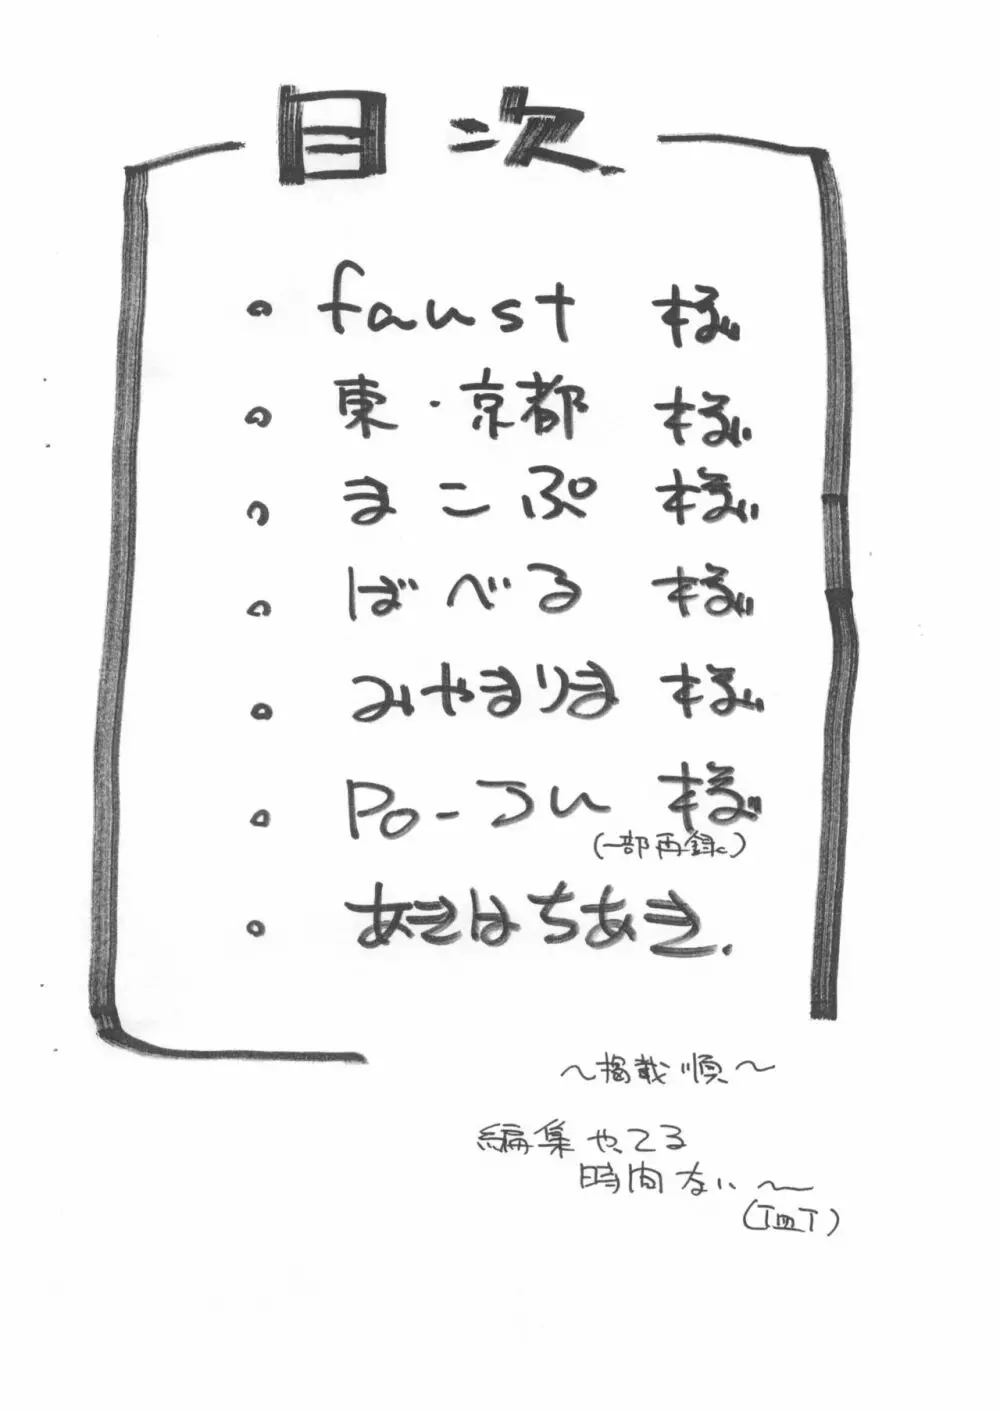 目次
・faust 様
・東・京都 様
・まこぷ 様
・ばべる 様
・みやまりま 様
・Po-じゅ 様
(一部再録)
・あきはちあき.
～掲載順～
編集やってる
時間ない～
(TmT)